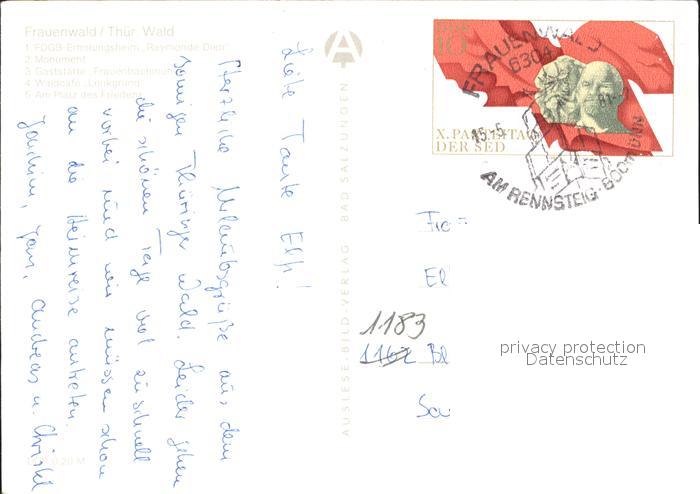 Frauenwald / Thür. Wald
1 FDGB-Erholungsheim „Raymonde Dien"
2 Monument
3 Gaststätte „Frauenbachmühle"
4 Waldcafé „Lenkgrund"
5 Am Platz des Friedens
Liebe Tante Elfi!
Herzliche Urlaubsgrüße aus dem
sonnigen Thüringer Wald. Leider gehen
die schönen Tage viel zu schnell
vorbei und wir müssen schon
an die Heimreise antreten.
Joachim, Jan, Andreas u. Christel
AUSLESE-BILD-VERLAG BAD SALZUNGEN
DDR
10
X. PARTEITAG
DER SED
FRAUENWALD
6304
15.-5.
81-
AM RENNSTEIG · 800m ü NN
El
1183
1162 Bl
privacy protection
Datenschutz
0,20 M